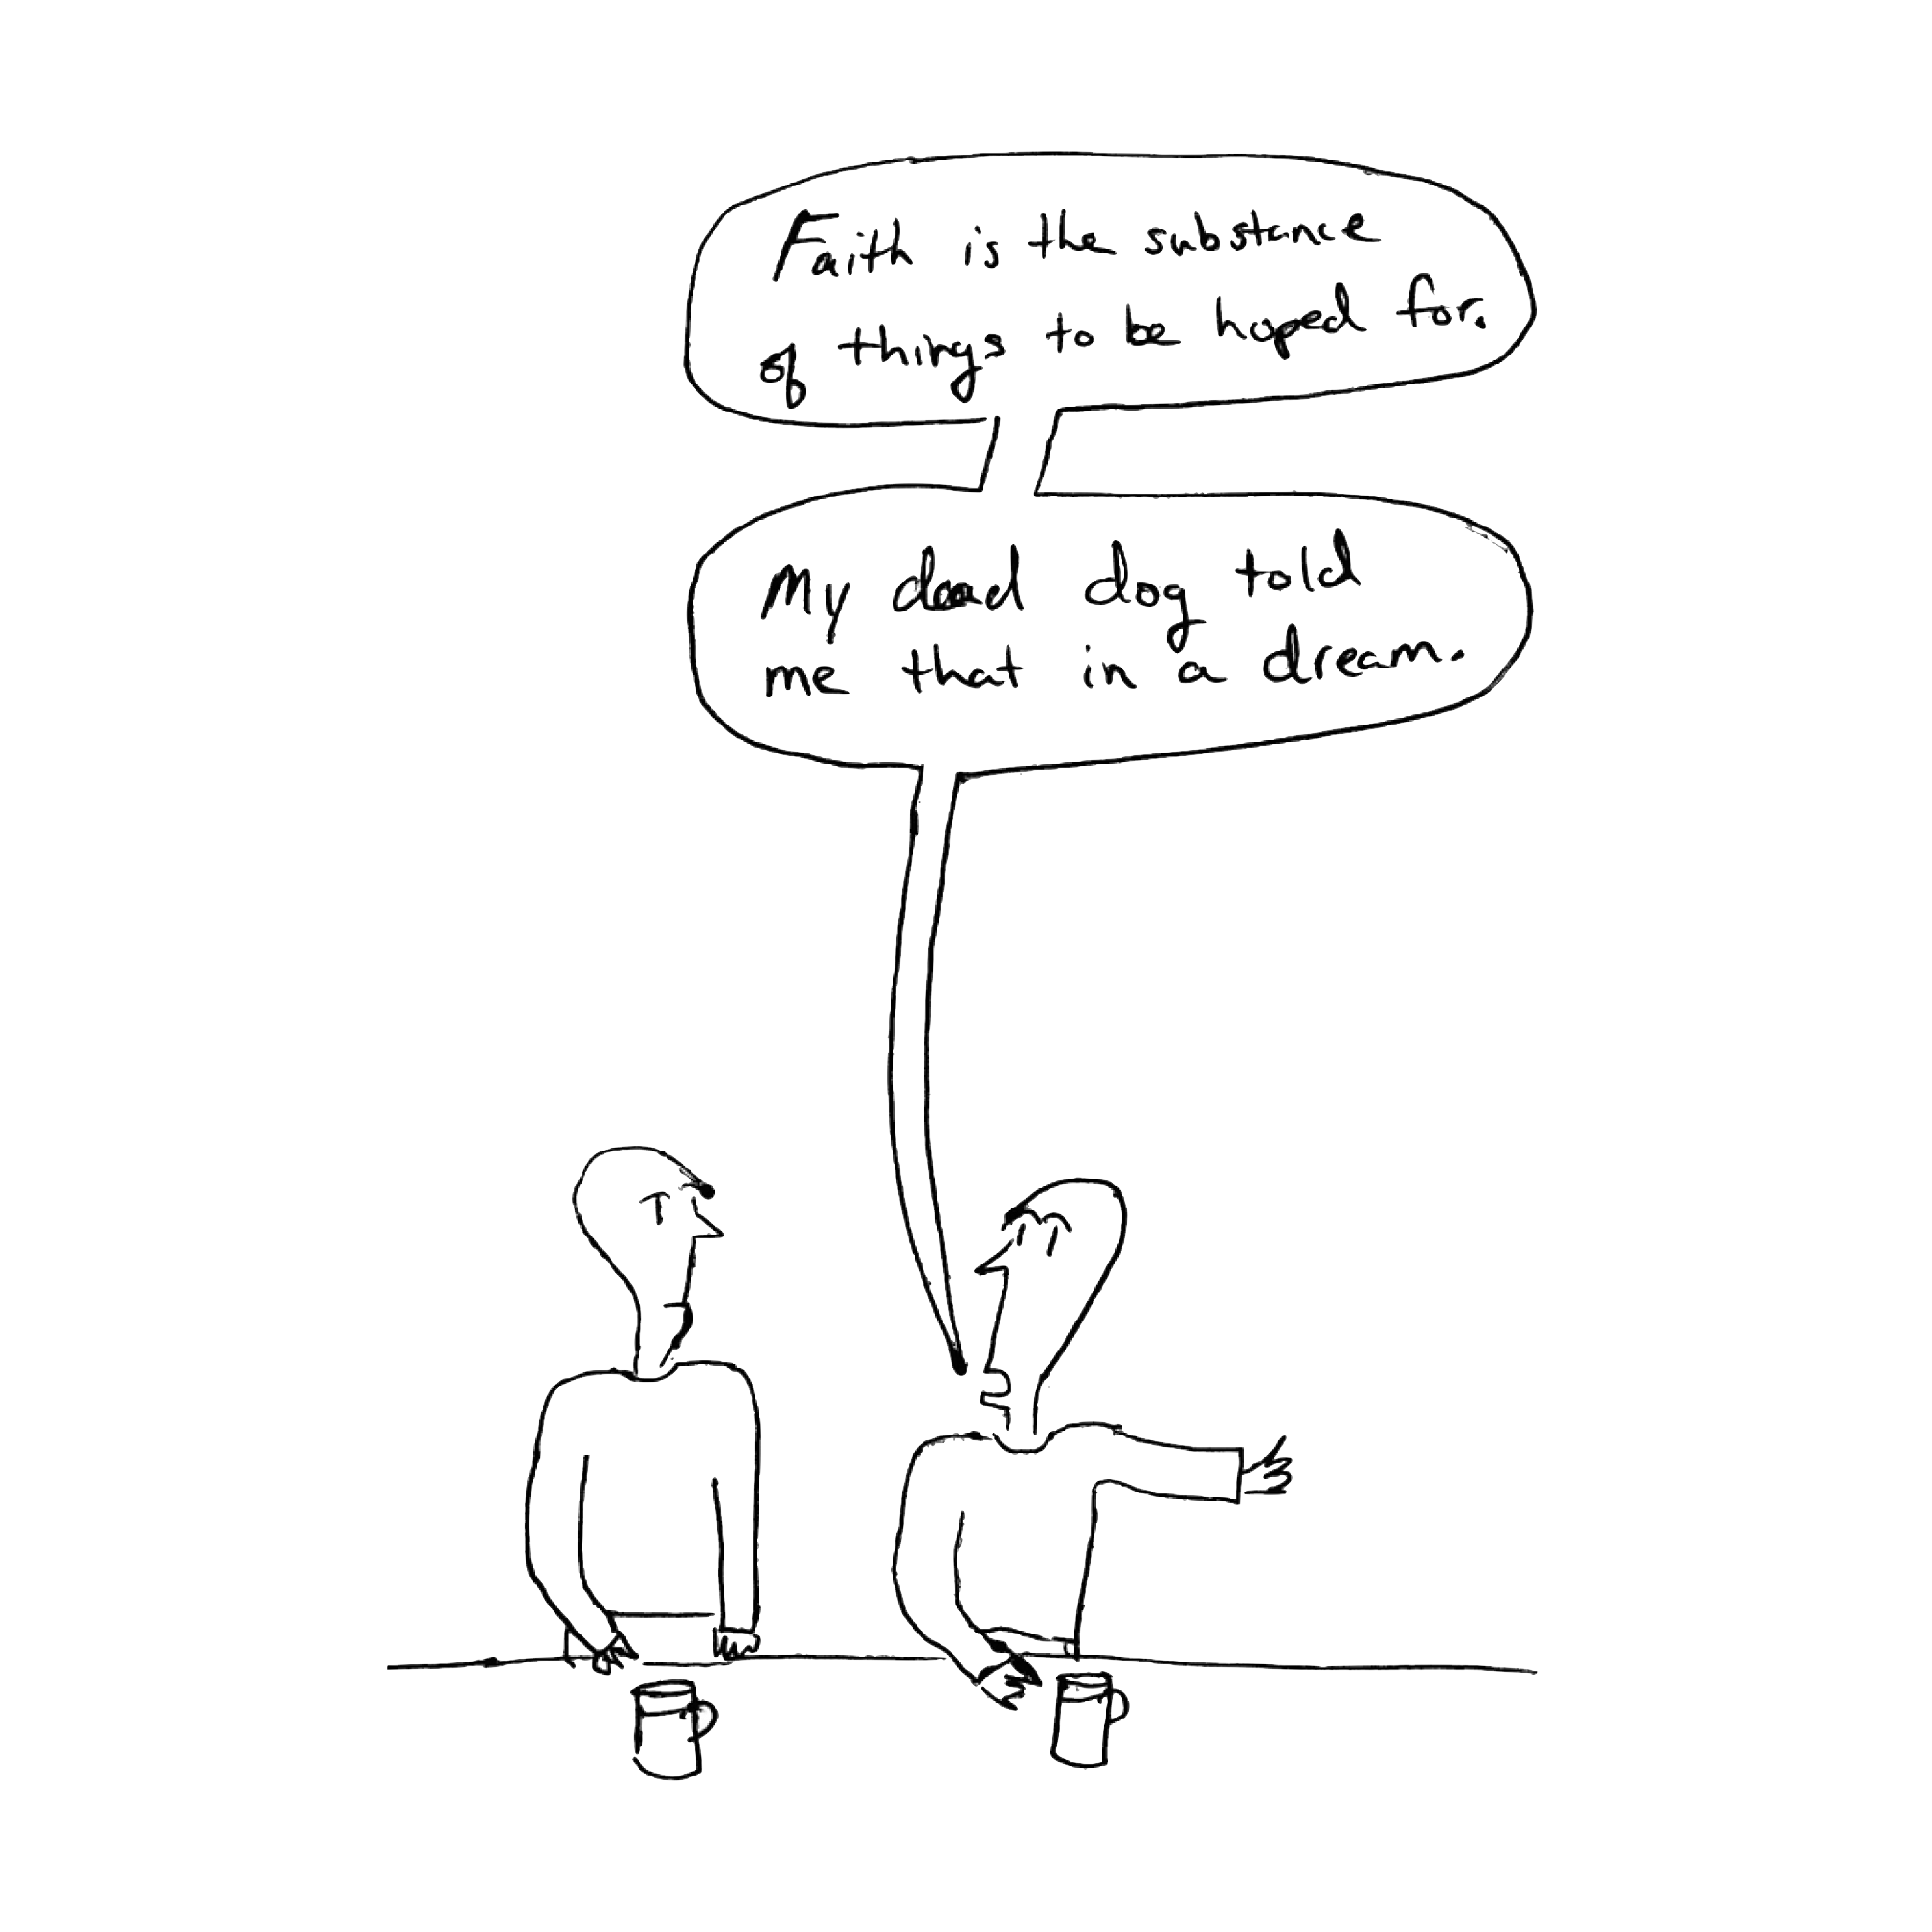 Faith is the substance
of things to be hoped for.
My dead dog told
me that in a dream.